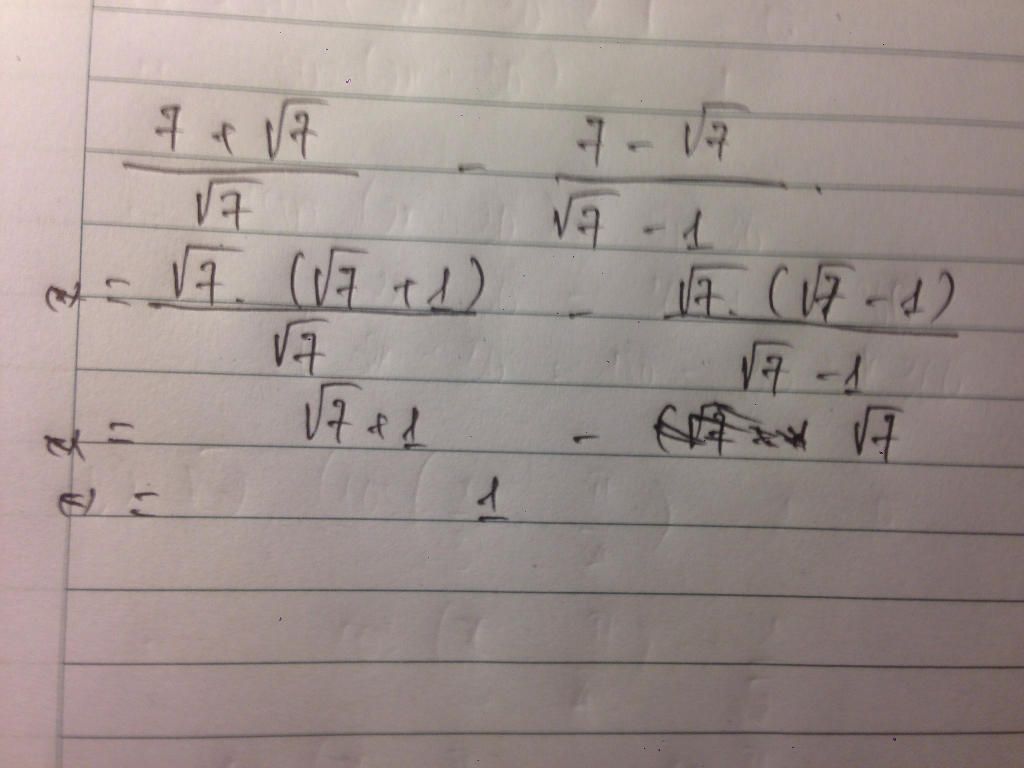 7 + √7 - 7 - √7 .
√7 √7 - 1
= √7 . (√7 + 1) - √7 . (√7 - 1)
√7 √7 - 1
= √7 + 1 - √7
= 1